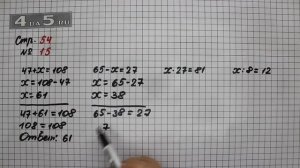 4 DA 5.RU
Стр. 54
№ 15
47+x=108
x=108-47
x=61
47+61=108
108=108
Ответ: 61
65-x=27
x=65-27
x=38
65-38=27
x·27=81
x:8=12